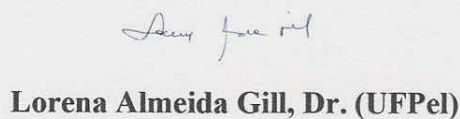 Lorena Almeida Gill, Dr. (UFPel)